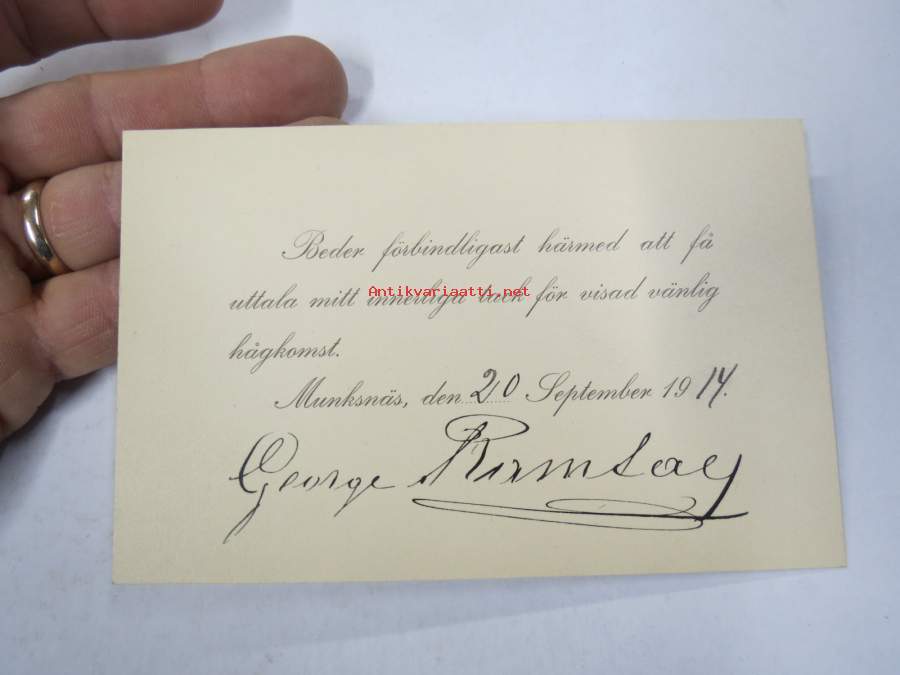 Beder förbindligast härmed att få
uttala mitt innerliga tack för visad vänlig
hågkomst.
Munksnäs, den 20 September 1914.
George Ramsay
Antikvariaatti.net